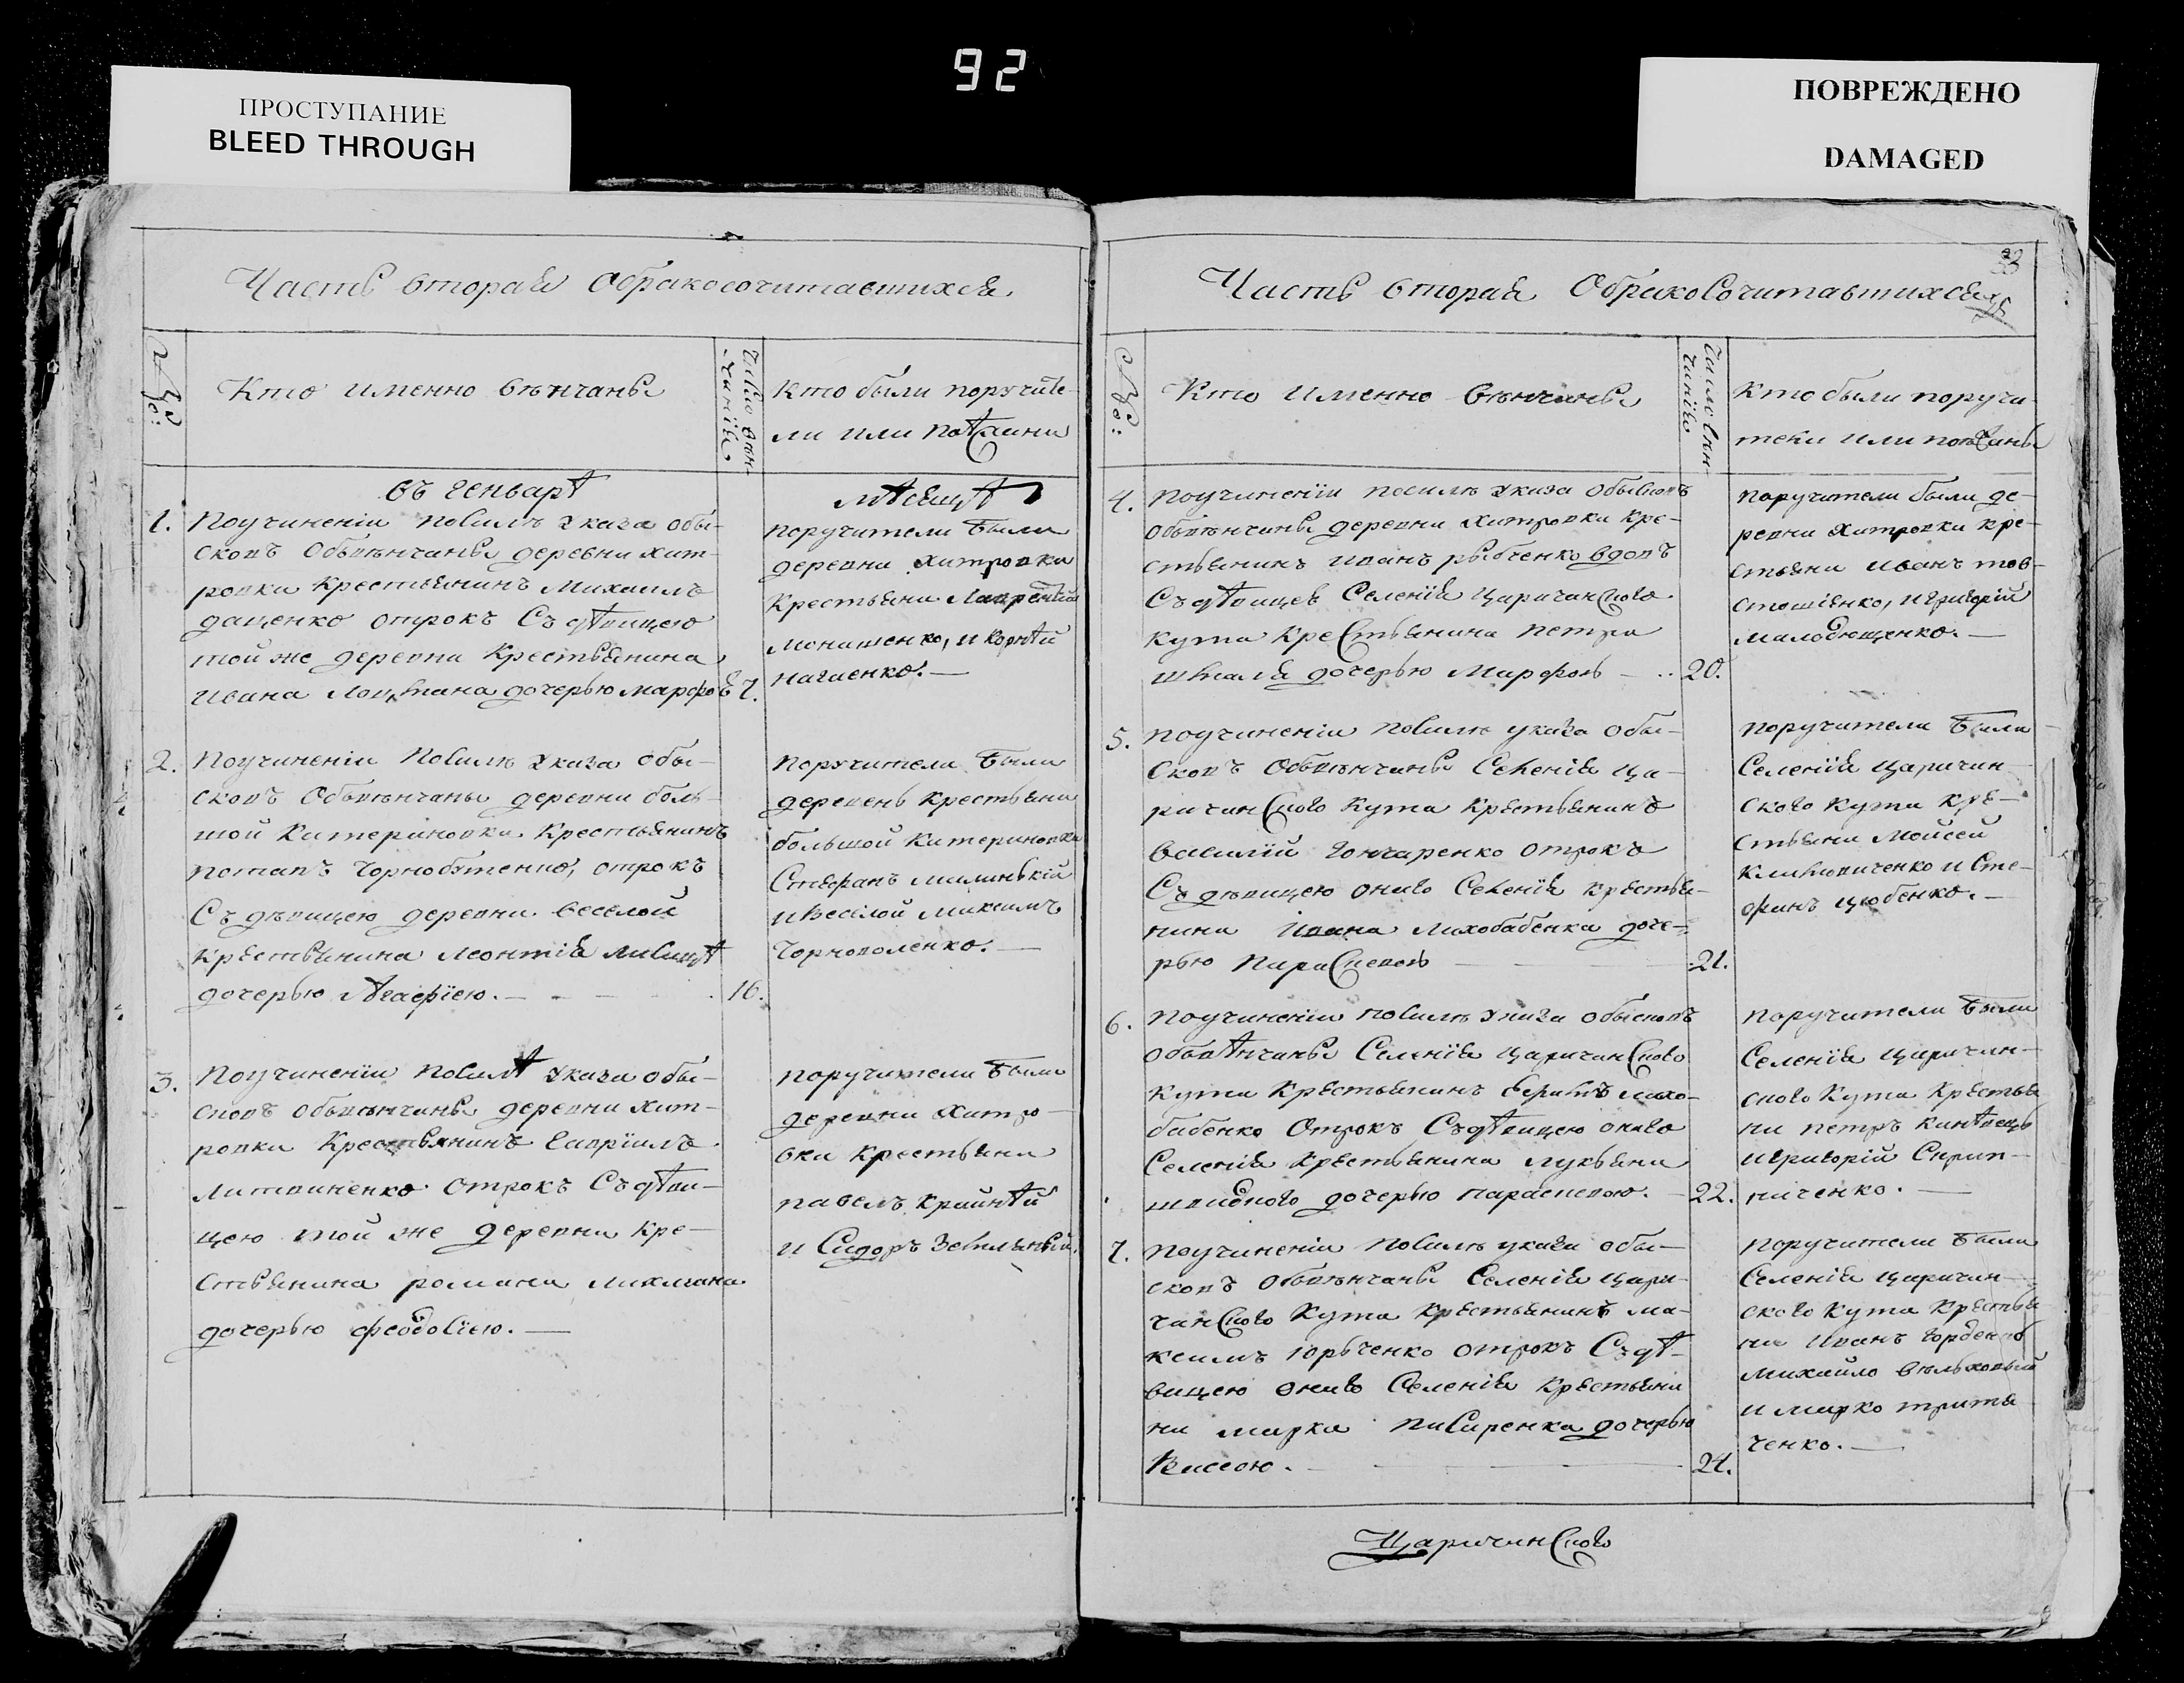 92
ПРОСТУПАНИЕ
BLEED THROUGH
ПОВРЕЖДЕНО
DAMAGED
Часть вторая Обракосочитавшихся
№:
Кто именно вѣнчаны
Число вѣн-
чанія
Кто были поручите-
ли или поѣжани
въ генварѣ
мѣсяцѣ
1. Поучиненіи посилѣ указа обы-
сковъ Обьвѣнчаны деревни хит-
ровки крестьянинъ Михаилъ
даценко отрокъ Съ дѣвицею
той же деревни Крестьянина
ивана Лоцмана дочерью марфою 7.
поручители были
деревни хитровки
крестьяни Лаврентій
монашенко, и корнѣй
нагаенко.
2. Поучиненіи Посилѣ указа обы-
сковъ Обьвѣнчаны деревни боль-
шой Катериновки Крестьянинъ
потапъ чорнобутенко, отрокъ
Съ дѣвицею деревни веселой
крестьянина леонтія лисицѣ
дочерью Агафіею. 16.
поручители были
деревень крестьяни
большой катериновки
Стефанъ милинькій
и веселой максимъ
чорноволенко.
3. Поучиненіи посилѣ указа обы-
сковъ обьвѣнчаны деревни хит-
ровки Крестьянинъ гавріилъ
литвиненко отрокъ Съ дѣви-
цею той же деревни кре-
стьянина романа
дочерью феодосіею.
поручители были
деревни хитро-
вки крестьяни
павелъ крайнѣй
и Сидоръ
33
Часть вторая ОбракоСочитавшихся
№:
Кто именно вѣнчаны
Число вѣн-
чанія
Кто были поручи-
тели или поѣжаны
4. поучиненіи посилѣ указа обысковъ
обьвѣнчаны деревни хитровки кре-
стьянинъ иванъ рыбченко вдовъ
Съ дѣвицею Селенія царичанского
кута крестьянина петра
шкаля дочерью Марфою 20.
поручители были де-
ревни хитровки кре-
стьяни иванъ тов-
стошіенко, и григорій

5. поучиненіи посилѣ указа обы-
сковъ Обьвѣнчаны Селенія ца-
ричанского кута крестьянинъ
василій гончаренко отрокъ
Съ дѣвицею онаго Селенія крестья-
нина Ивана лихобабенка доче-
рью параскевою 21.
поручители были
Селенія царичан-
ского кута кре-
стьяни Мойсей
климовиченко и Сте-
фанъ цюбенко.
6. поучиненіи посилѣ указа обысковъ
обьвѣнчаны Селенія царичанского
кута крестьянинъ лихо-
бабенко отрокъ Съ дѣвицею онаго
Селенія крестьянина лукьяна
швидкого дочерью параскевою. 22.
поручители были
Селенія царичан-
ского кута крестья
ни петръ
и григорій Скрип-
ниченко.
7. поучиненіи посилѣ указа обы-
сковъ обьвѣнчаны Селенія цари-
чанского кута крестьянинъ ма-
ксимъ юрьченко отрокъ Съ дѣ-
вицею онаго Селенія крестьяни
на марка писаренка дочерью
Вассою. 24.
поручители были
Селенія царичан-
ского кута крестья
ни иванъ горденко
михайло вельховый
и марко
ченко.
Царичанского